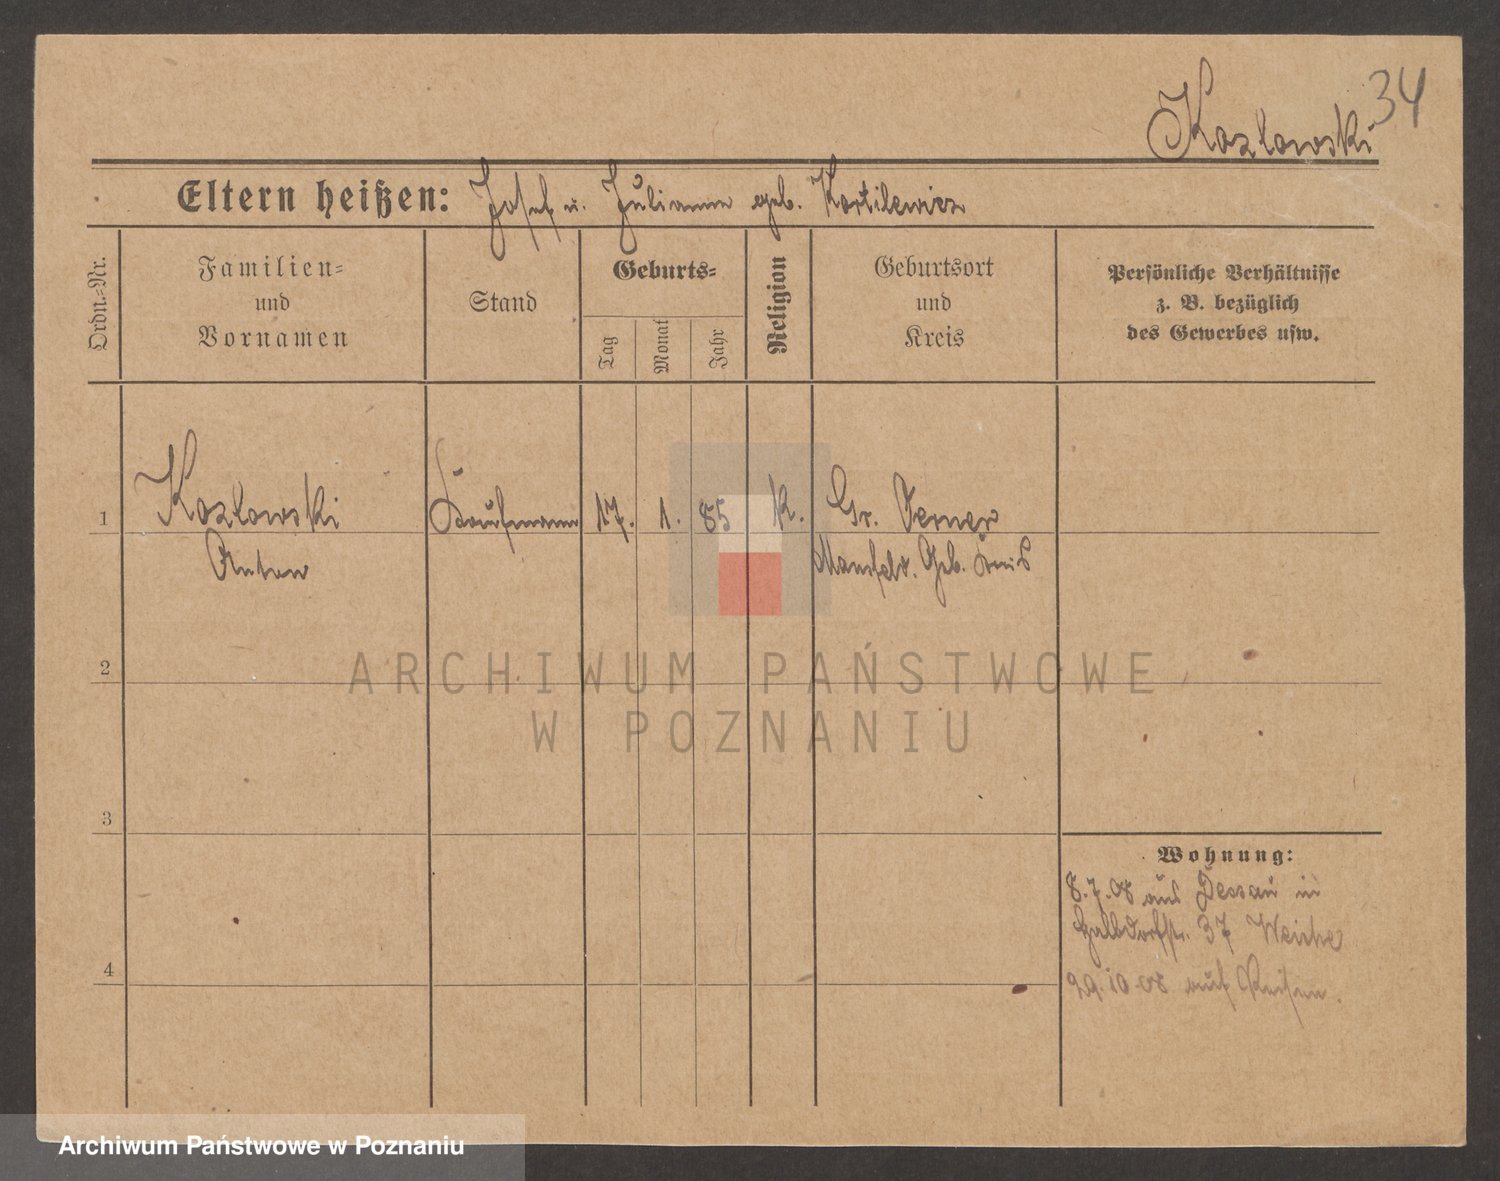 34
Kozlowski
Eltern heißen: Josef u. Julianna geb. Kortilewicz
Ordn.-Nr.
Familien-
und
Vornamen
Stand
Geburts-
Tag
Monat
Jahr
Religion
Geburtsort
und
Kreis
Persönliche Verhältnisse
z. B. bezüglich
des Gewerbes usw.
1
Kozlowski
Anton
Kaufmann
17. 1. 85
K.
Gr.
Mansfeld. Geb. Kreis
2
3
4
Wohnung:
8.7.08 aus Dessau in
Halbdorfstr. 37
29.10.08 auf Reisen.
ARCHIWUM PAŃSTWOWE
W POZNANIU
Archiwum Państwowe w Poznaniu